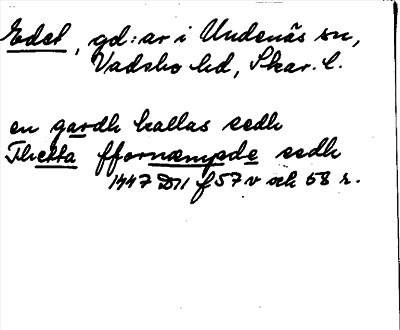 Edet, gd:ar i Undenäs sn,
Vadsbo hd, Skar. l.
en gardh kallas eedh
Thetta ffornæmpde eedh
1447 D11 f 57 v och 58 r.